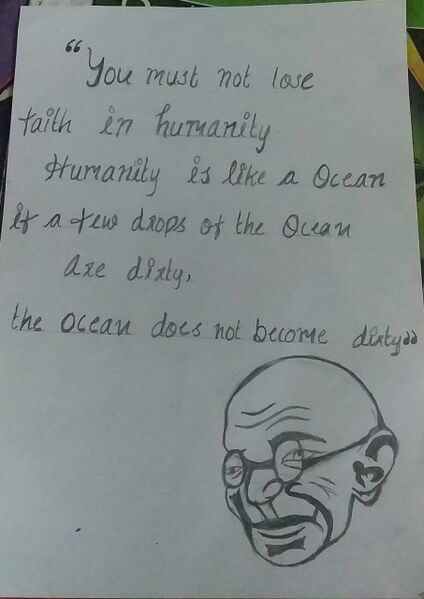 “You must not lose
faith in humanity
Humanity is like a Ocean
if a few drops of the Ocean
are dirty,
the Ocean does not become dirty”